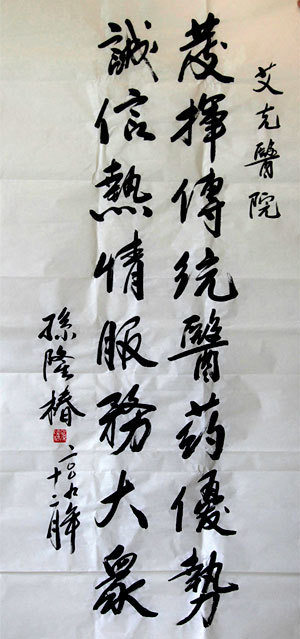 艾克醫院
發揮傳统醫药優勢
誠信熱情服務大眾
孫隆椿
二〇〇九年
十二月